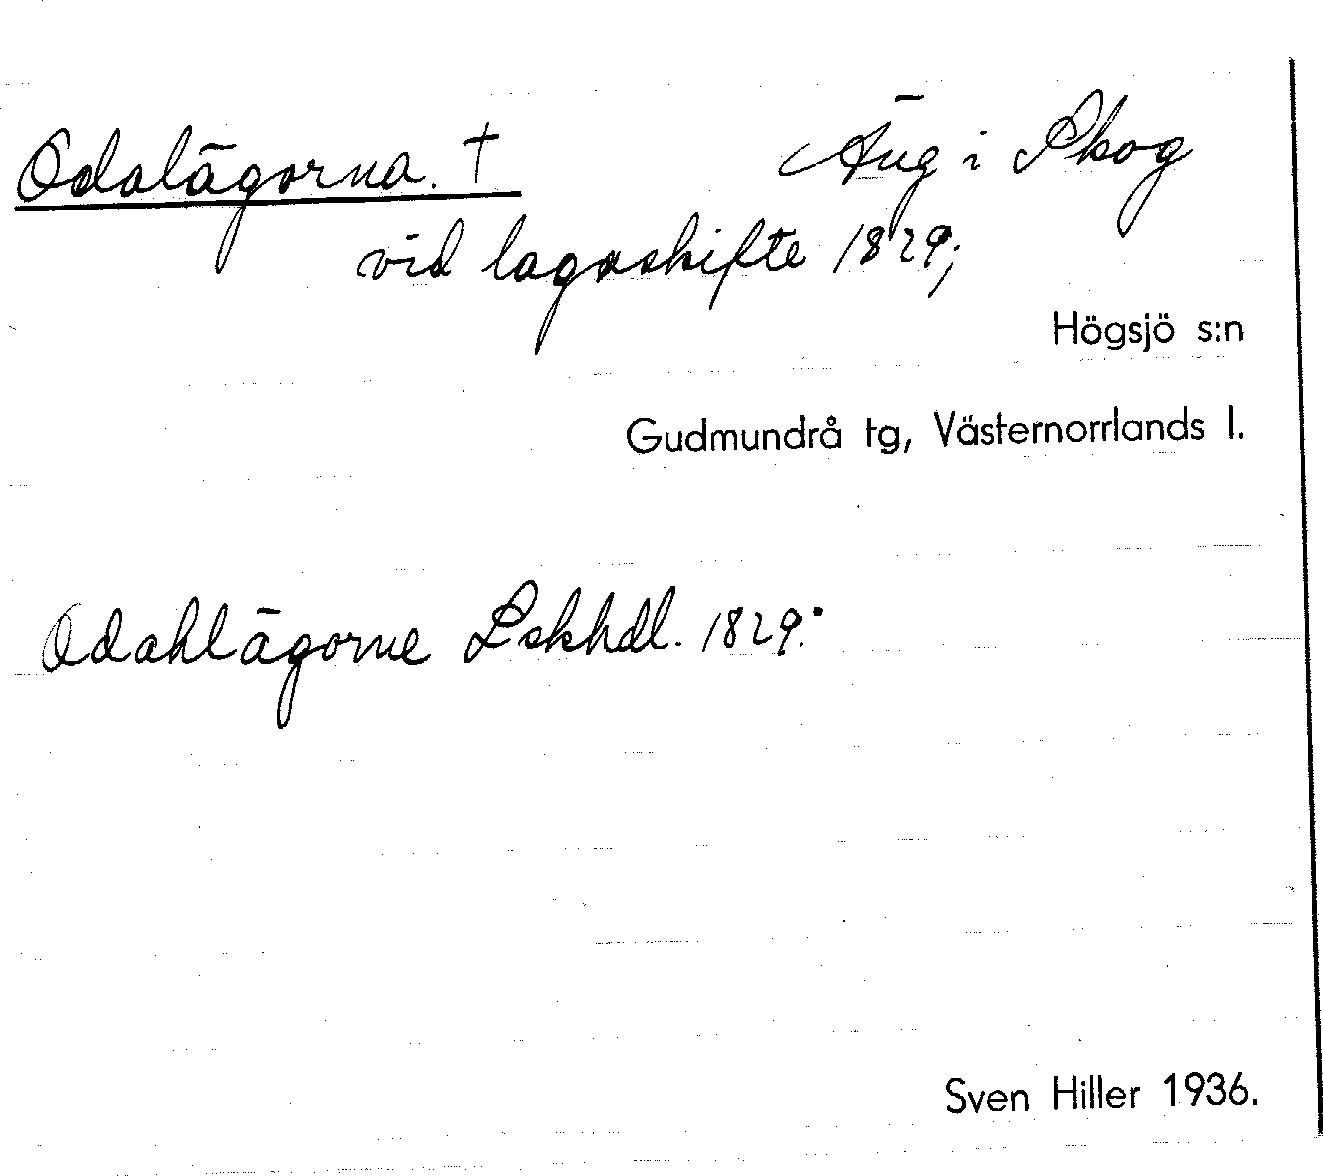 Odalägorna. † Äng i Skog
vid lagaskifte 1829;
Högsjö s:n
Gudmundrå tg, Västernorrlands l.
Odahlägorne Lskhdl. 1829.
Sven Hiller 1936.